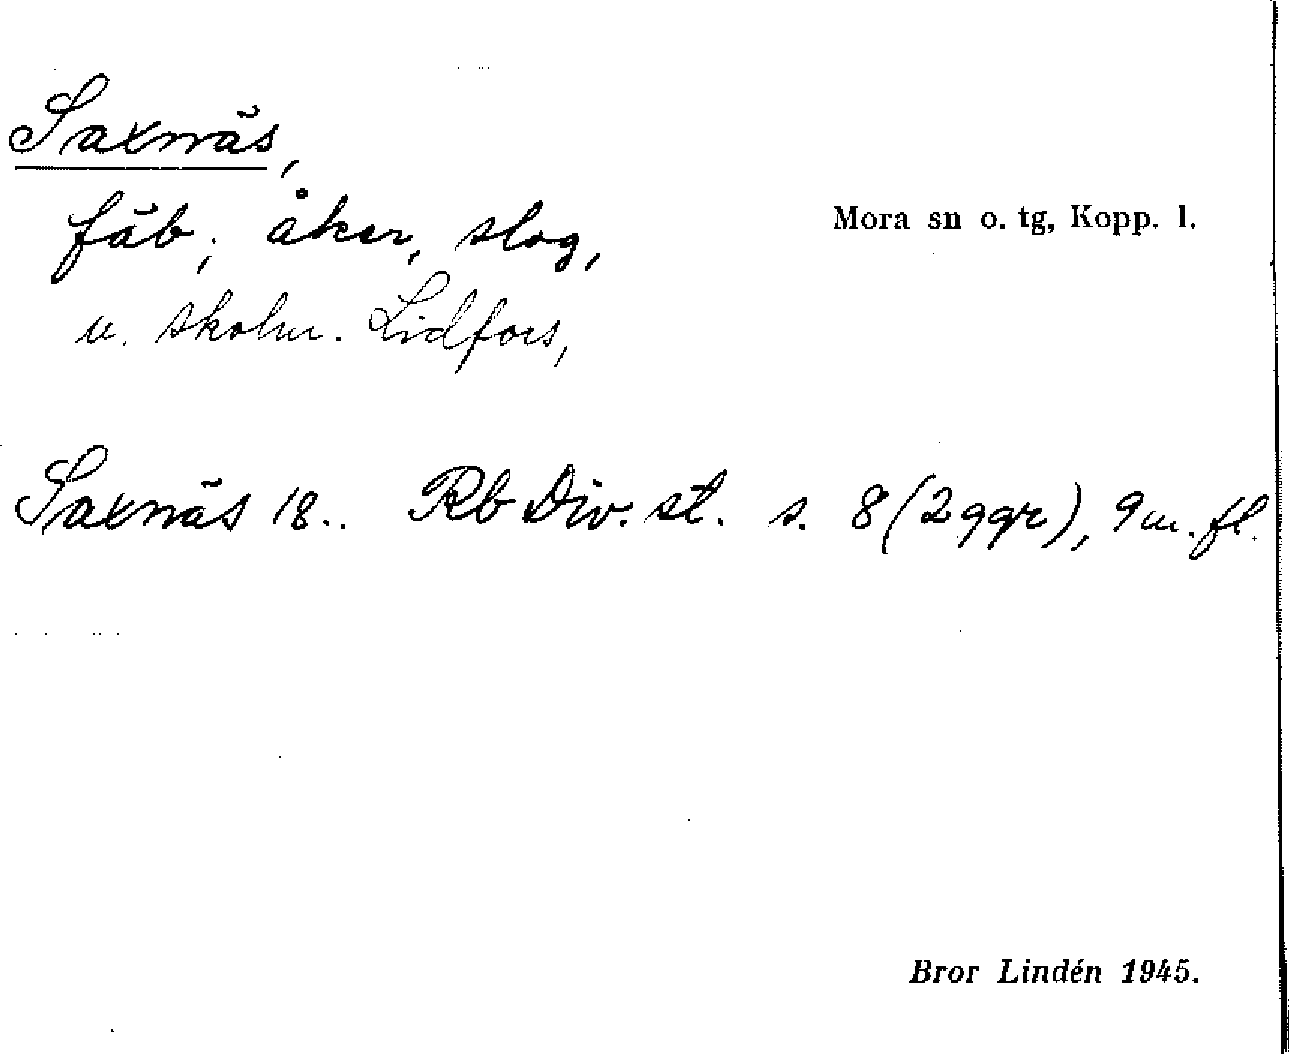 Saxnäs,
fäb; åker, slog,
Mora sn o. tg, Kopp. l.
u. skolm. Lidfors,
Saxnäs 18.. Rb Div. st. s. 8 (2 ggr), 9 m. fl.
Bror Lindén 1945.